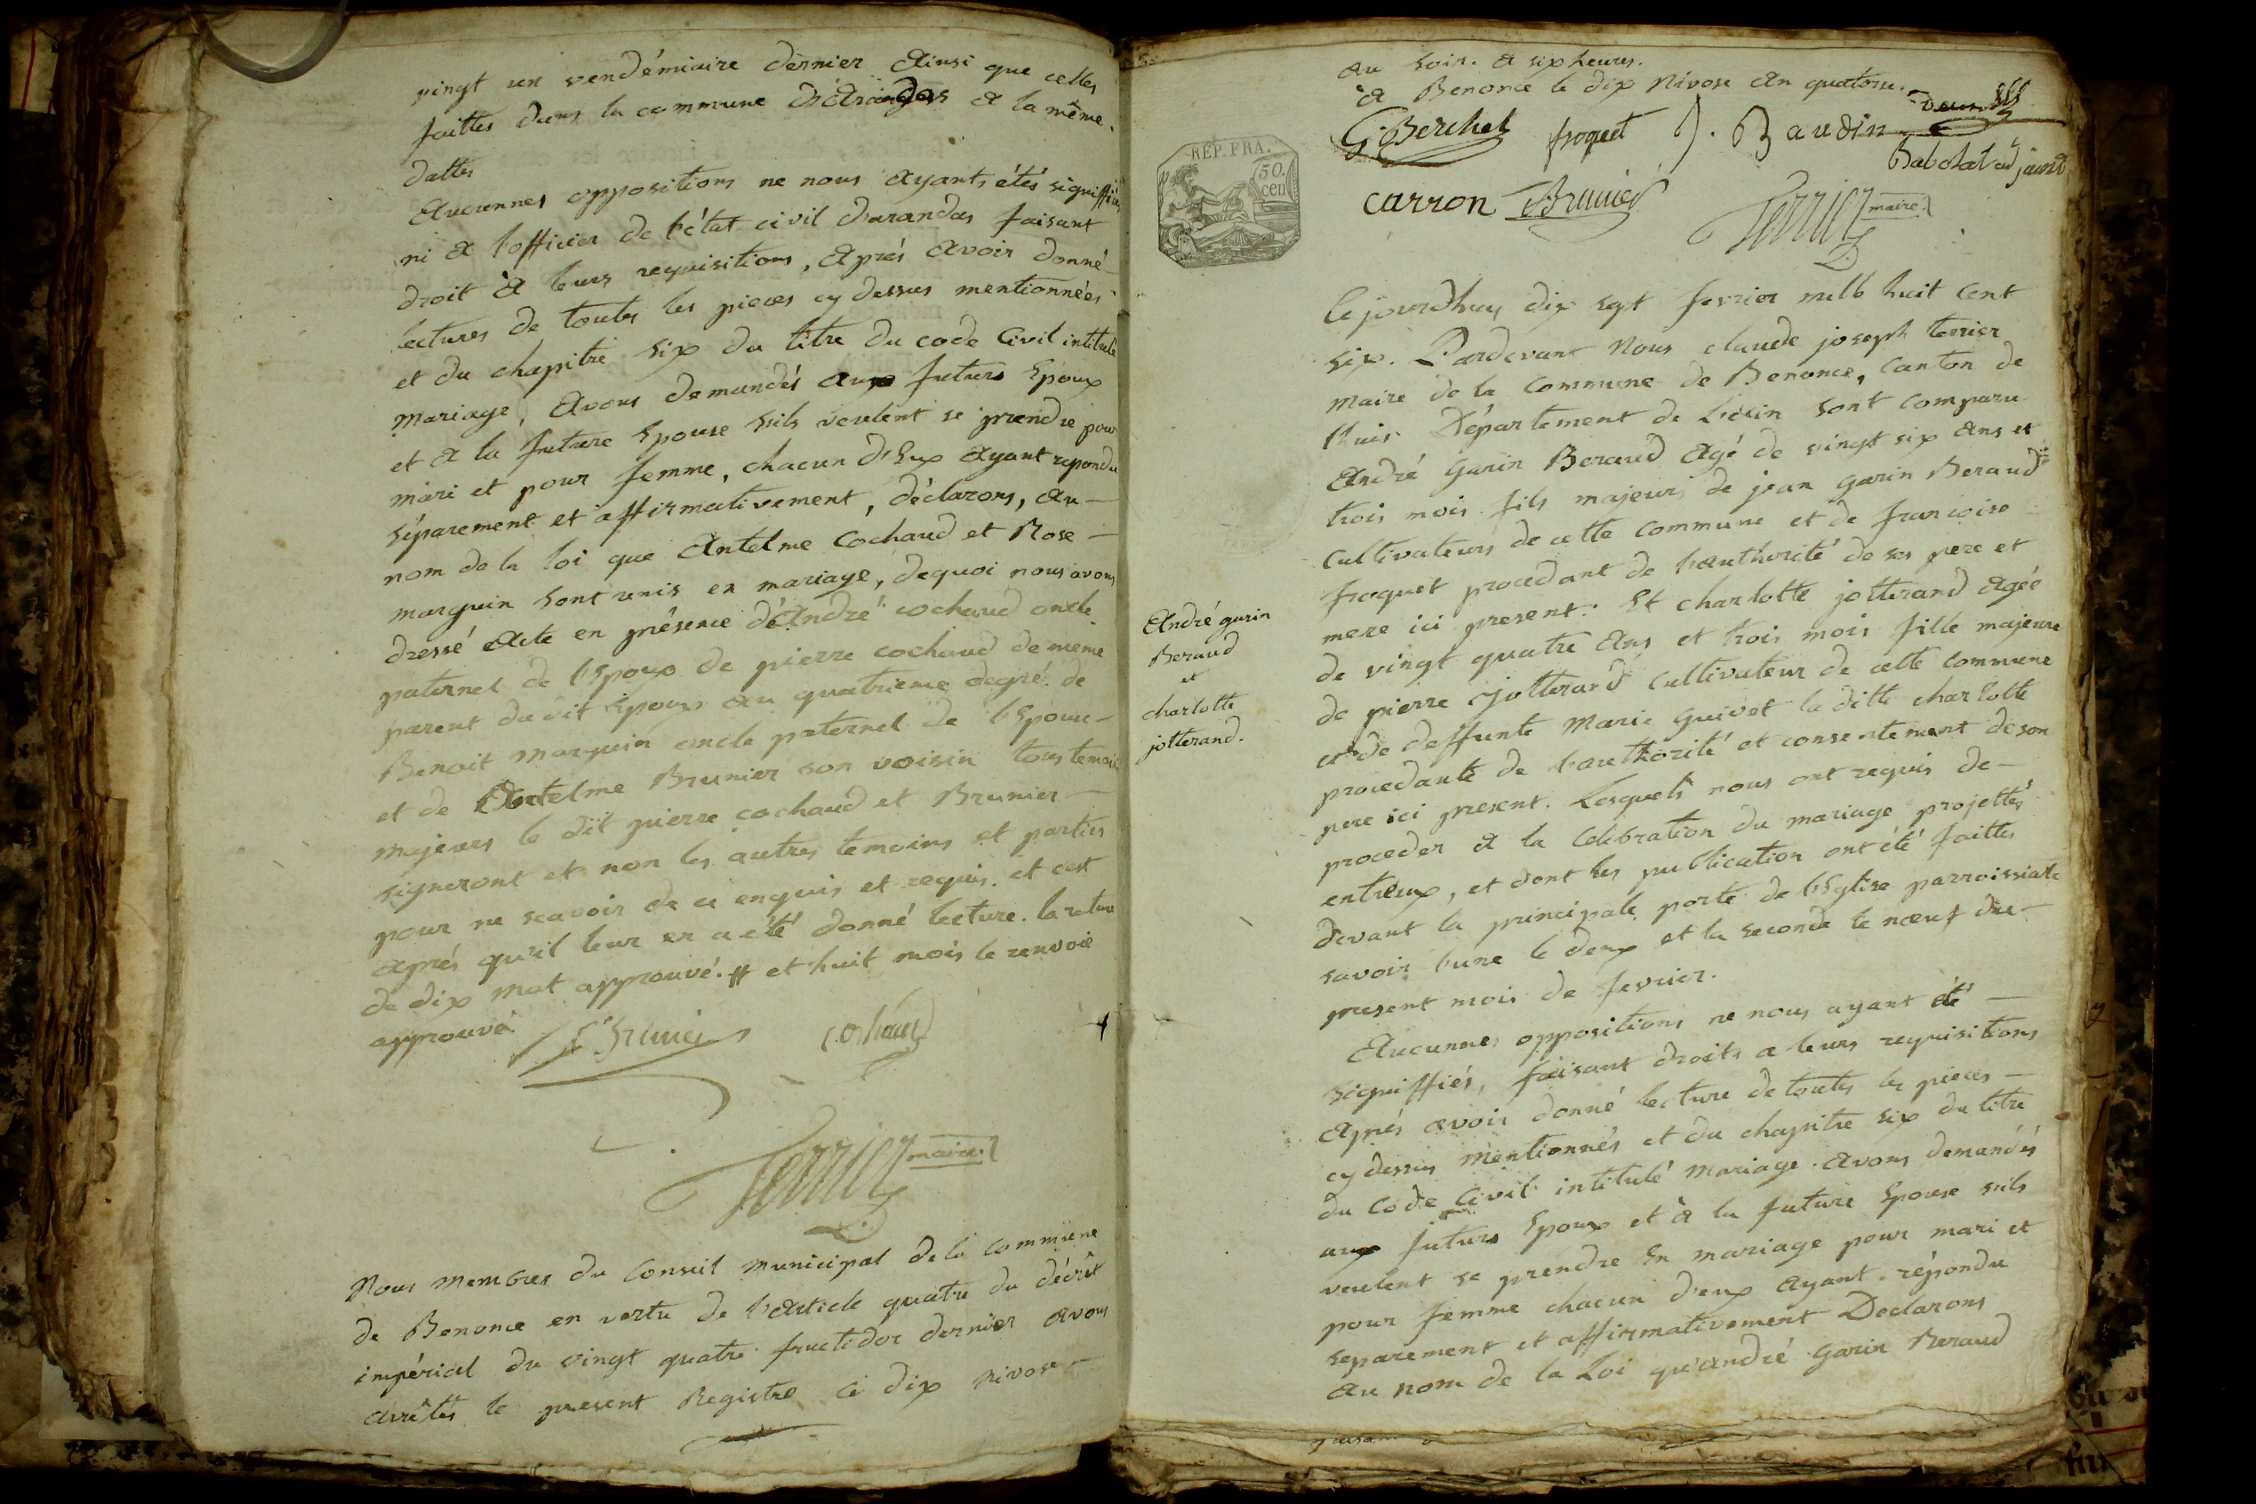 vingt un vendémiaire dernier Ainsi que celles
faittes dans la commune d'Arandas a la même
dattes
Aucunnes oppositions ne nous ayants étés signiffiées
ni a l'officier de l'état civil d'arandas faisant
droit à leurs requisitions, Aprés avoir donné
lectures de toutes les pieces cy dessus mentionnées
et du chapitre six du titre du code Civil intitulé
mariage, Avons demandés aux futurs Epoux
et a la future Epouse sils veulent se prendre pour
mari et pour femme, chacun d'Eux Ayant repondu
séparement et affirmativement, déclarons, au
nom de la loi que Antelme Cochaud et Rose
marguin sont unis en mariage, dequoi nous avons
dressé Acte en présence d'André cochaud oncle
paternel de l'Epoux de pierre cochaud de meme
parent du dit Epoux au quatrieme degré de
Benoit marguin oncle paternel de l'Epouse
et de Antelme Brunier son voisin tous temoins
majeurs le dit pierre cochaud et Brunier
signeront et non les autres temoins et parties
pour ne scavoir de ce enquis et requis. et cest
Aprés qu'il leur en a été donné lecture. la rature
de dix mot approuvé. # et huit mois le renvoie
approuvé Brunier Cochaud
Terrier maire
Nous membres du Conseil municipal de la commune
de Benonce en vertu de l'article quatre du décret
impérial du vingt quatre fructidor dernier avons
arrêtés le present Registre ce dix nivose
au soir. a six heures.
A Benonce le dix Nivose an quatorse.
G. Berchet froquet J. Baudin
Babolat adjoint
carron Brunier
Terrier maire
REP. FRA.
50. cen
André garin
Beraud
et
charlotte
jotterand.
Cejourdhuy dix sept fevrier mille huit cent
six. Pardevant Nous claude joseph terrier
maire de la Commune de Benonce, Canton de
Departement de L'ain sont comparu
André Garin Beraud Agé de vingt six Ans et
trois mois fils majeur de jean garin Beraud
cultivateurs de cette Commune et de francoise
froquet procedant de l'authorité de ses pere et
mere ici present. Et charlotte jotterand Agée
de vingt quatre Ans et trois mois fille majeure
de pierre jotterand Cultivateur de cette Commune
et de deffunte Marie guivet la ditte charlotte
procedante de l'authorité et consentement de son
pere ici present. Lesquels nous ont requis de
proceder a la Celebration du mariage projettés
entreux, et dont les publication ont été faittes
devant la principale porte de l'Eglise parroissiale
savoir l'une le deux et la seconde le nœuf du
present mois de fevrier.
Aucunnes oppositions ne nous ayant été
signiffiés, faisant droits a leurs requisitions
Aprés avoir donné lecture de toutes les pieces
cy dessus mentionnés et du chapitre six du titre
du Code Civil intitulé mariage. Avons demandés
aux futurs Epoux et à la future Epouse sils
veulent se prendre En mariage pour mari et
pour femme chacun d'eux Ayant répondu
separement et affirmativement Declarons
Au nom de la Loi qu'andré Garin Beraud